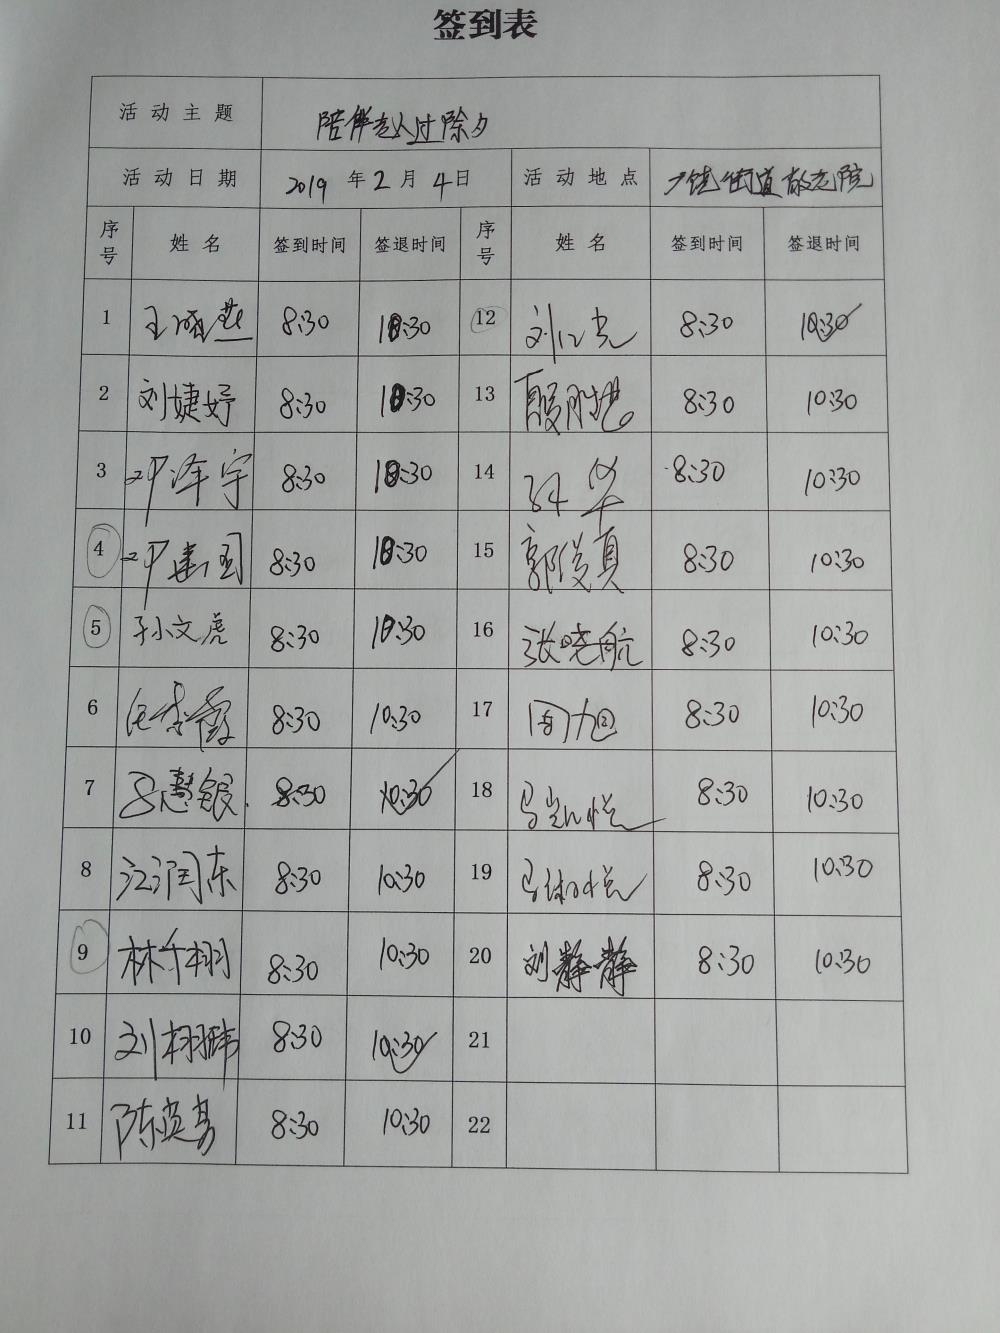 签到表
活动主题 陪伴老人过除夕
活动日期 2019年2月4日 活动地点 广饶街道敬老院
序号 姓名 签到时间 签退时间 序号 姓名 签到时间 签退时间
1 王晓燕 8:30 10:30 12 刘仁光 8:30 10:30
2 刘婕妤 8:30 10:30 13 殷胜 8:30 10:30
3 尹泽宇 8:30 10:30 14 8:30 10:30
4 尹建国 8:30 10:30 15 郭俊真 8:30 10:30
5 孙文虎 8:30 10:30 16 张晓航 8:30 10:30
6 8:30 10:30 17 周旭 8:30 10:30
7 吕慧银 8:30 10:30 18 马凯悦 8:30 10:30
8 江润东 8:30 10:30 19 马悦 8:30 10:30
9 林千栩 8:30 10:30 20 刘静静 8:30 10:30
10 刘栩 8:30 10:30 21
11 陈英勇 8:30 10:30 22